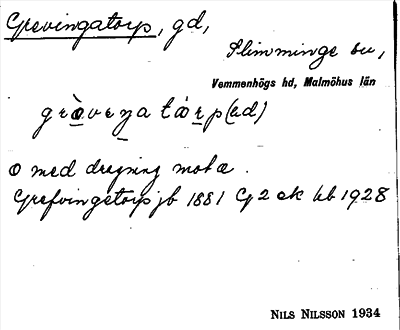 Grevingatorp, gd,
Slimminge sn,
Vemmenhögs hd, Malmöhus län
gròveŋa tȧrp(ed)
o med dragning mot a.
Grefvingetorp jb 1881 G 2 ek kb 1928
NILS NILSSON 1934